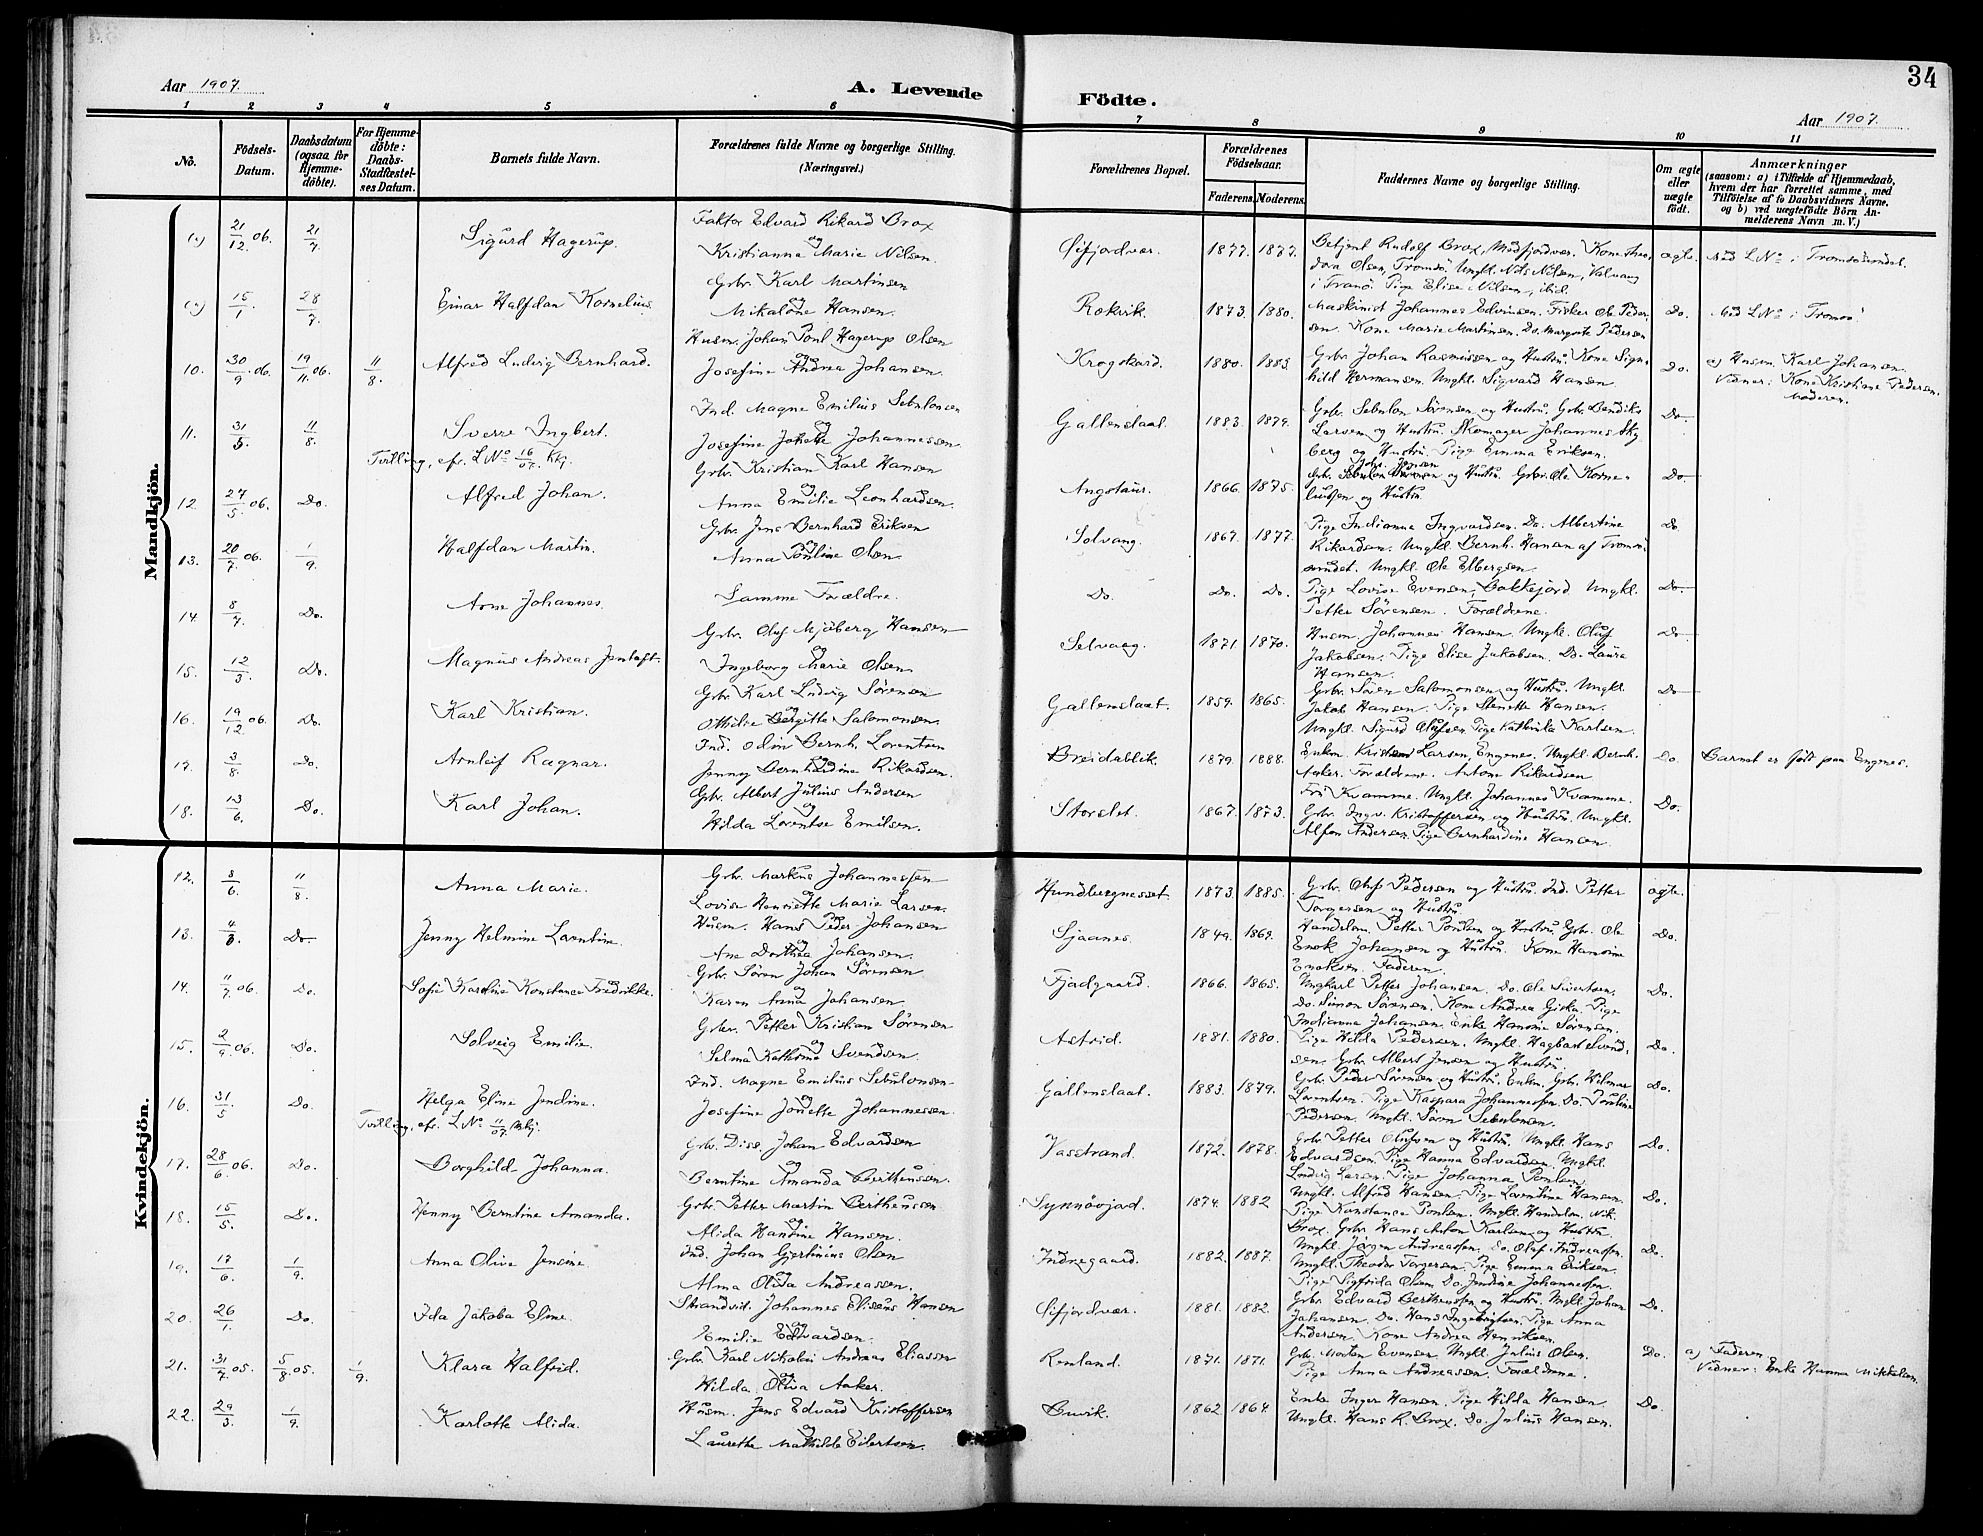 34
Aar 1907.
A. Levende Födte.
Aar 1907.
1 2 3 4 5 6 7 8 9 10 11
No.
Födsels-Datum.
Daabsdatum (ogsaa for Hjemme-döbte).
For Hjemme-döbte: Daabs-Stadfæstel-ses Datum.
Barnets fulde Navn.
Forældrenes fulde Navne og borgerlige Stilling. (Næringsvei.)
Forældrenes Bopæl.
Forældrenes Födselsaar.
Faderens. Moderens.
Faddernes Navne og borgerlige Stilling.
Om ægte eller uægte født.
Anmærkninger
(saasom: a) i Tilfælde af Hjemmedaab, hvem der har forrettet samme, med Tilföielse af to Daabsvidners Navne. og b) ved uegtefödte Börn An-melderens Navn m. V.)
Mandkjön.
21/12 06. 21/7. Sigurd Hagerup. Faktor Edvard Rikard Brox og Kristianna Marie Nilsen. Öifjordvær. 1877. 1877. Betjent Rudolf Brox, Medfjordvær. Kone Theo-
dora Olsen, Tromsö. Ungkl. Nils Nilsen, Valvaag
i Tranö. Pige Elise Nilsen, ibid. ægte. Med L No i Tromsösundet.
15/1 28/7. Einar Halfdan Kornelius. Gbr. Karl Martinsen og Mikaline Hansen. Rökvik. 1873. 1880. Maskinist Johannes Edvinsen. Fisker Ole Peder-
sen. Kone Marie Martinsen. Do. Margrete Pedersen Do. Med L No i Tromsö.
10. 30/9 06. 19/11 06. 11/8. Alfred Ludvig Bernhard. Husm. Johan Poul Hagerup Olsen og Josefine Andrea Johansen. Krogskard. 1880. 1883. Gbr. Johan Rasmussen og Hustru. Kone Sign-
hild Hermansen. Ungkl. Sigvard Hansen. Do. a) Husm. Karl Johansen.
Vidner: Kone Kristiane Pedersen.
Moderen.
11. 31/5 11/8. Sverre Ingbert. Ind. Magne Emilius Sebulonsen og Josefine Jonette Johannessen. Gallenslaat. 1883. 1879. Gbr. Sebulon Sörensen og Hustru. Gbr. Bendiks
Larsen og Hustru. Skomager Johannes Sky-
berg og Hustru. Pige Emma Eriksen. Do.
Tvilling, cfr. L No 16/07. Kkj.
12. 27/5 06. Do. Alfred Johan. Gbr. Kristian Karl Hansen og Anna Emilie Leonhardsen. Angstaur. 1866. 1875. Gbr. Sebulon Sörensen og Hustru. Gbr. Ole Korne-
liussen og Hustru. Do.
13. 20/7 06. 1/9. Halfdan Martin. Gbr. Jens Bernhard Eriksen og Anna Pauline Olsen. Solvang. 1867. 1877. Pige Indianna Ingvardsen. Do. Albertine
Rikardsen. Ungkl. Bernh. Hansen af Tromsö-
sundet. Ungkl. Ole Elbergsen. Do.
14. 8/7 Do. Arne Johannes. Samme Forældre. Do. Do. Do. Pige Lovise Evensen, Bakkejord. Ungkl.
Petter Sörensen. Forældrene. Do.
15. 12/3 Do. Magnus Andreas Jentoft. Gbr. Oluf Mjöberg Hansen og Ingeborg Marie Olsen. Selvaag. 1871. 1870. Husm. Johannes Hansen. Ungkl. Oluf
Jakobsen. Pige Elise Jakobsen. Do. Laura
Hansen. Do.
16. 19/12 06. Do. Karl Kristian. Gbr. Karl Ludvig Sörensen og Othilie Bergitte Salomonsen. Gallenslaat. 1859. 1865. Gbr. Sören Salomonsen og Hustru. Ungkl.
Jakob Hansen. Pige Stenette Hansen.
Ungkl. Sigurd Olufsen. Pige Kathrika Karlsen. Do.
17. 3/8. Do. Arnleif Ragnar. Ind. Odin Bernh. Lorentsen og Jenny Bernhardine Rikardsen. Breidablik. 1879. 1888. Enkm. Kristian Larsen, Engenes. Ungkl. Bernh.
Aaker. Forældrene. Antone Rikardsen Do. Barnet er født paa Engenes.
18. 13/6. Do. Karl Johan. Gbr. Albert Julius Andersen og Hilda Lorentse Emilsen. Storslet. 1867. 1873. Frk Kvamme. Ungkl. Johannes Kvamme.
Gbr. Ingv. Kristoffersen og Hustru. Ungkl.
Alfon Andersen. Pige Bernhardine Hansen. Do.
Kvindekjön.
12. 8/6. 11/8. Anna Marie. Gbr. Markus Johannessen og Lovise Henriette Marie Larsen. Hundbergnesset. 1873. 1885. Gbr. Oluf Pedersen og Hustru. Ind. Petter
Torgersen og Hustru. ægte.
13. 4/3. Do. Jenny Helmine Lorentine. Husm. Hans Peder Johansen og Ane Dorthea Johansen. Sjaanes. 1849. 1869. Handelsm. Petter Poulsen og Hustru. Gbr. Ole
Enok Johansen og Hustru. Kone Hansine
Enoksen. Faderen. Do.
14. 11/7 06. Do. Sofie Karoline Konstance Fredrikke. Gbr. Sören Johan Sörensen og Karen Anna Johansen. Fjadgaard. 1866. 1865. Ungkarl Petter Johansen. Do. Ole Sivertsen.
Do. Simon Sörensen. Kone Andrea Giska. Pige
Indianna Johansen. Enke Hansine Sörensen. Do.
15. 2/9 06. Do. Solveig Emilie. Gbr. Petter Kristian Sörensen og Selma Kathrine Svendsen. Astrid. 1881. 1880. Pige Hilda Pedersen. Ungkl. Hagbart Svend-
sen. Gbr. Albert Jensen og Hustru. Do.
16. 31/5. Do. Helga Eline Jendine. Ind. Magne Emilius Sebulonsen og Josefine Jonette Johannessen. Gallenslaat. 1883. 1879. Gbr. Peder Sörensen og Hustru. Enkm. Gbr. Hilmar
Lorentsen. Pige Kaspara Johannessen. Do. Pauline
Pedersen. Ungkl. Sören Sebulonsen. Do.
Tvilling, cfr. L No 11/07. Mkj.
17. 28/6 06. Do. Borghild Johanna. Gbr. Diss Johan Edvardsen og Berntine Amanda Bertheussen. Vasstrand. 1872. 1878. Gbr. Petter Olufsen og Hustru. Ungkl. Hans
Edvardsen. Pige Hanna Edvardsen. Ungkl.
Ludvig Larsen. Pige Johanna Poulsen. Do.
18. 15/5. Do. Henny Berntine Amanda. Gbr. Petter Martin Bertheussen og Alida Hansine Hansen. Synnövjord. 1874. 1882 Ungkl. Alfred Hansen. Pige Lorentine Hansen.
Pige Konstance Poulsen. Ungkl. Handelsm. Nik.
Brox. Gbr. Hans Anton Karlsen og Hustru. Do.
19. 17/6 1/9. Anna Olive Jensine. Ind. Johan Gjertinius Olsen og Alma Olida Andreassen. Indregaard. 1882. 1887. Ungkl. Jörgen Andreassen. Do. Olaf Andreassen.
Ungkl. Theodor Torgersen. Pige Emma Eriksen.
Pige Sigfrida Olsen. Do. Jendine Johannessen. Do.
20. 26/1. Do. Ida Jakoba Eline. Strandsid. Johannes Elisens Hansen og Emilie Edvardsen. Öifjordvær. 1881. 1882. Gbr. Edvard Bertheussen og Hustru. Ungkl. Johan
Johansen. Do. Hans Ingebrigtsen. Pige Anna
Andersen. Kone Andrea Henriksen. Do.
21. 31/7 05. 5/8 05. 1/9. Klara Halfrid. Gbr. Karl Nikolai Andreas Eliassen og Hilda Oliva Aaker. Renland. 1871. 1871. Gbr. Morten Evensen. Ungkl. Julius Olsen.
Pige Anna Andreassen. Forældrene. Do. a) Faderen.
Vidner: Enke Hanna Mikkelsen.
22. 29/3. 1/9. Karlotte Alida. Husm. Jens Edvard Kristoffersen og Laurethe Mathilde Eilertsen. Buvik. 1862 1864. Enke Inger Hansen. Pige Hilda Hansen.
Ungkl. Hans R. Brox. Do. Julius Hansen. Do.